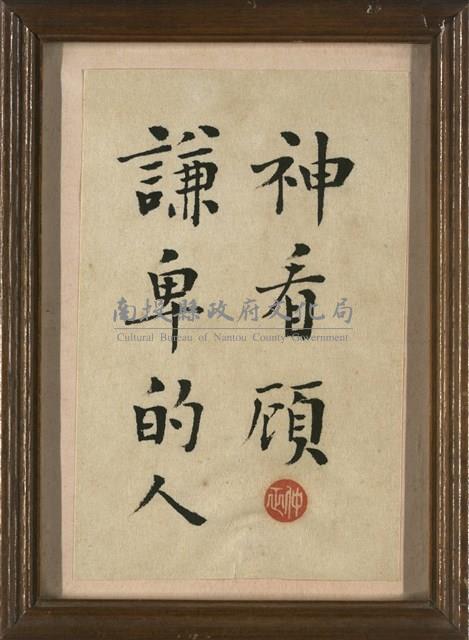 神看頋
謙卑的人
南投縣政府文化局
Cultural Bureau of Nantou County Government